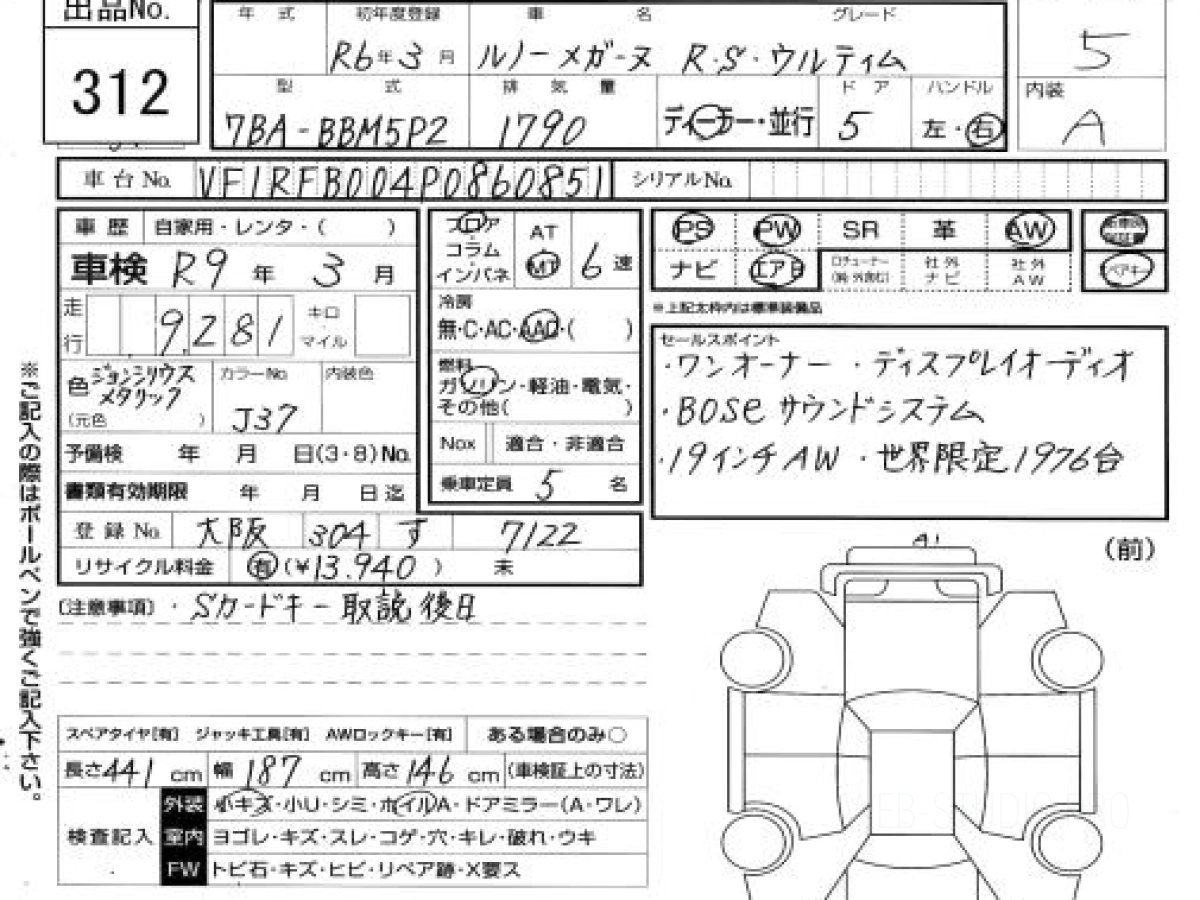 出品No.
312
年 式 初年度登録 車 名 グレード
R6年3月 ルノーメガーヌ R・S・ウルティム
5
型 式 排 気 量 ディーラー・並行 ド ア ハンドル
7BA-BBM5P2 1790 5 左・右
内装
A
車台No. VF1RFB004P0860851 シリアルNo.
車 歴 自家用・レンタ・( )
車検 R9年 3月
走行 9,281 キロ マイル
色 ジョンシリウスメタリック
(元色 )
カラーNo. J37 内装色
予備検 年 月 日(3・8)No.
書類有効期限 年 月 日迄
登録No. 大阪 304 す 7122
リサイクル料金 有(¥13.940) 未
フロア
コラム
インパネ
AT
MT
6速
冷房
無・C・AC・AAC・( )
燃料
ガソリン・軽油・電気・
その他( )
Nox 適合・非適合
乗車定員 5 名
PS PW SR 革 AW
ナビ エアB ロチューナー 社外ナビ 社外AW スペアキー
※上記太枠内は標準装備品
セールスポイント
・ワンオーナー ・ディスプレイオーディオ
・BOSEサウンドシステム
・19インチAW ・世界限定1976台
(注意事項)・Sカードキー取説後日
A1
(前)
スペアタイヤ[有] ジャッキ工具[有] AWロックキー[有] ある場合のみ○
長さ441cm 幅187cm 高さ146cm (車検証上の寸法)
検査記入
外装 小キズ・小U・シミ・ホイルA・ドアミラー(A・ワレ)
室内 ヨゴレ・キズ・スレ・コゲ・穴・キレ・破れ・ウキ
FW トビ石・キズ・ヒビ・リペア跡・X要ス
※ご記入の際はボールペンで強くご記入下さい。